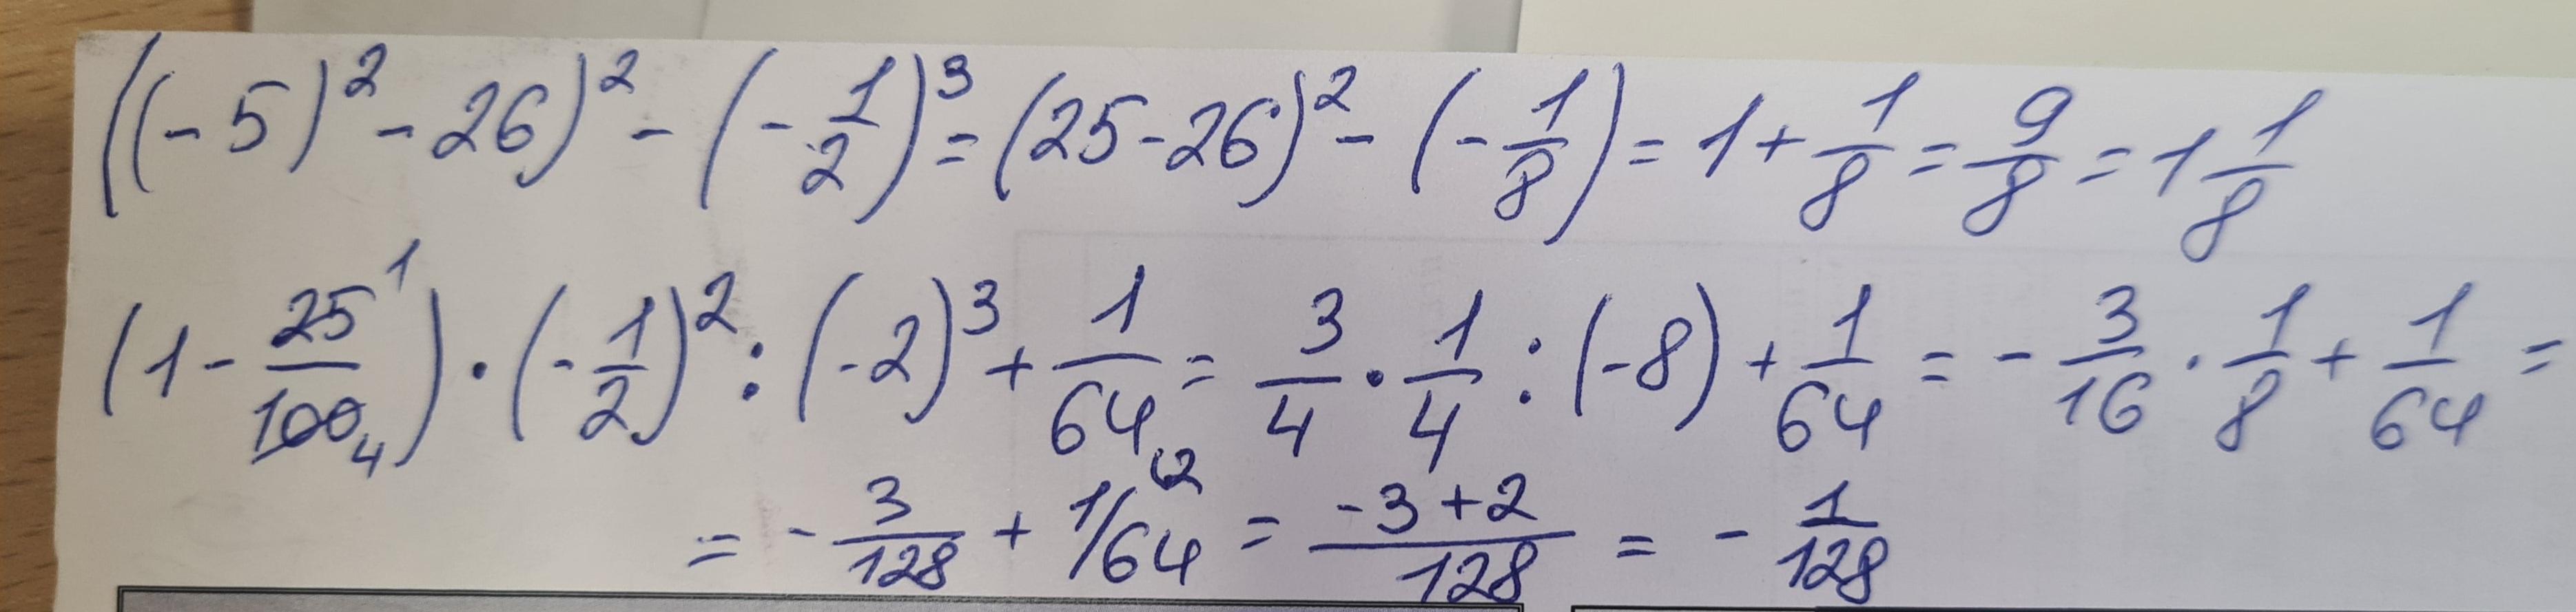 ((-5)² - 26)² - (-1/2)³ = (25-26)² - (-1/8) = 1 + 1/8 = 9/8 = 1 1/8
(1 - 25¹/100₄) · (-1/2)² : (-2)³ + 1/64 = 3/4 · 1/4 : (-8) + 1/64 = - 3/16 · 1/8 + 1/64 =
= - 3/128 + 1/64 ² = (-3+2)/128 = - 1/128